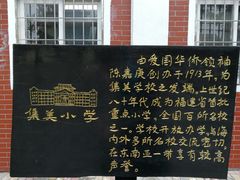 集美小学
由爱国华侨领袖
陈嘉庚创办于1913年,为
集美学校之发端。上世纪
八十年代成为福建省首批
重点小学、全国百所名校
之一。学校开放办学,与海
内外多所名校交流密切,
在东南亚一带享有较高
声誉。